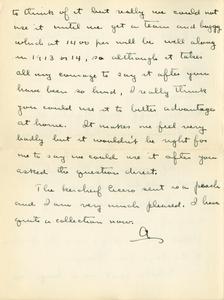 to think of it but really we could not
use it until we get a team and buggy
which at 14.00 per will be well along
in 1913 or 14, so although it takes
all my courage to say it after you
have been so kind, I really think
you could use it to better advantage
at home. It makes me feel very
badly but it wouldn't be right for
me to say we could use it after you
asked the question direct.
The kerchief Cicero sent is a peach
and I am very much pleased. I have
quite a collection now.